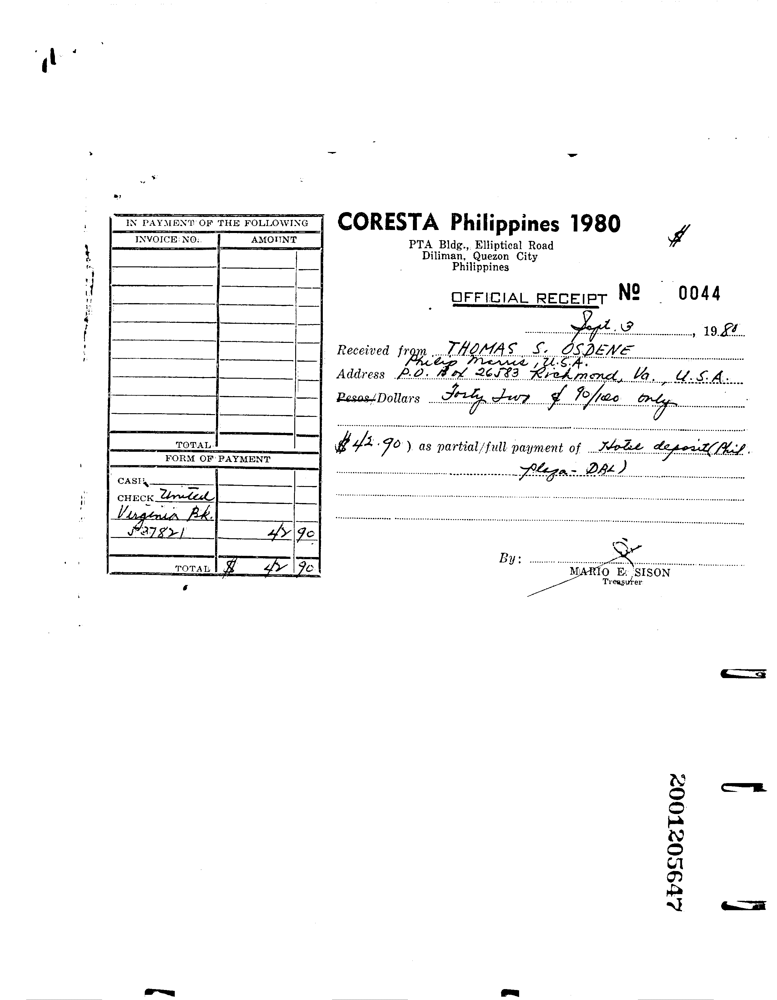 IN PAYMENT OF THE FOLLOWING
INVOICE NO. AMOUNT
TOTAL
FORM OF PAYMENT
CASH
CHECK United
Virginia Bk.
42 90
TOTAL $ 42 90
CORESTA Philippines 1980
$
PTA Bldg., Elliptical Road
Diliman, Quezon City
Philippines
OFFICIAL RECEIPT Nº 0044
Sept. 3, 1980
Received from THOMAS S. OSDENE
Philip Morris, U.S.A.
Address P.O. Box 26583 Richmond, Va., U.S.A.
Pesos/Dollars Forty Two & 90/100 only
$42.90) as partial/full payment of Hotel deposit (Phil.
Plaza - DBL)
By:
MARIO E. SISON
Treasurer
2001205647